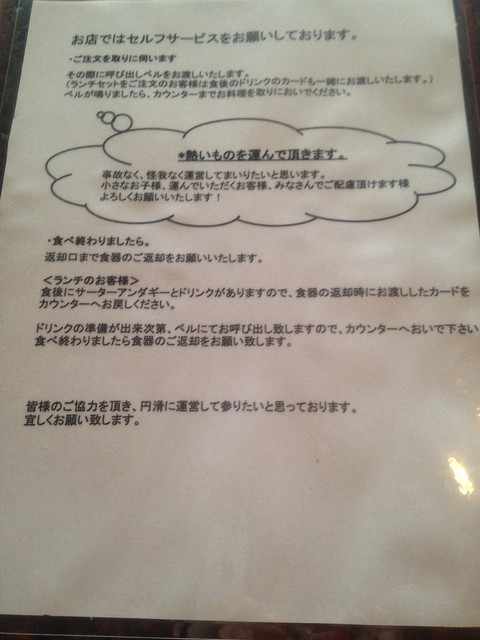 お店ではセルフサービスをお願いしております。
・ご注文を取りに伺います
その際に呼び出しベルをお渡しいたします。
(ランチセットをご注文のお客様は食後のドリンクのカードも一緒にお渡しいたします。)
ベルが鳴りましたら、カウンターまでお料理を取りにおいでください。
*熱いものを運んで頂きます。
事故なく、怪我なく運営してまいりたいと思います。
小さなお子様、運んでいただくお客様、みなさんでご配慮頂けます様
よろしくお願いいたします!
・食べ終わりましたら。
返却口まで食器のご返却をお願いいたします。
<ランチのお客様>
食後にサーターアンダギーとドリンクがありますので、食器の返却時にお渡ししたカードを
カウンターへお戻しください。
ドリンクの準備が出来次第、ベルにてお呼び出し致しますので、カウンターへおいで下さい
食べ終わりましたら食器のご返却をお願い致します。
皆様のご協力を頂き、円滑に運営して参りたいと思っております。
宜しくお願い致します。